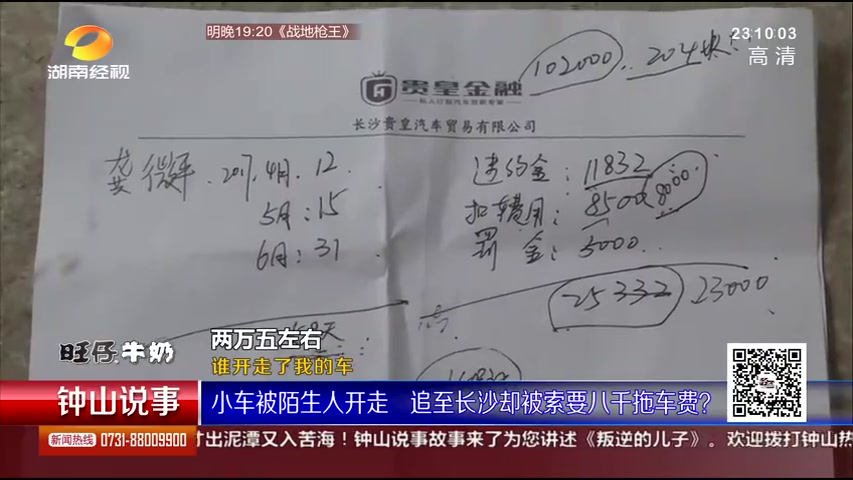 明晚19:20《战地枪王》
23:10:03
湖南经视
高清
102000
204块
贵皇金融
长沙贵皇汽车贸易有限公司
龚微平.2017.4月.12
违约金:11832
5月:15
扣车费用:8500 8000
6月:31
罚金:5000
25332 23000
两万五左右
谁开走了我的车
旺仔牛奶
钟山说事
小车被陌生人开走 追至长沙却被索要八千拖车费?
新闻热线 0731-88009900
才出泥潭又入苦海!钟山说事故事来了为您讲述《叛逆的儿子》。欢迎拨打钟山热